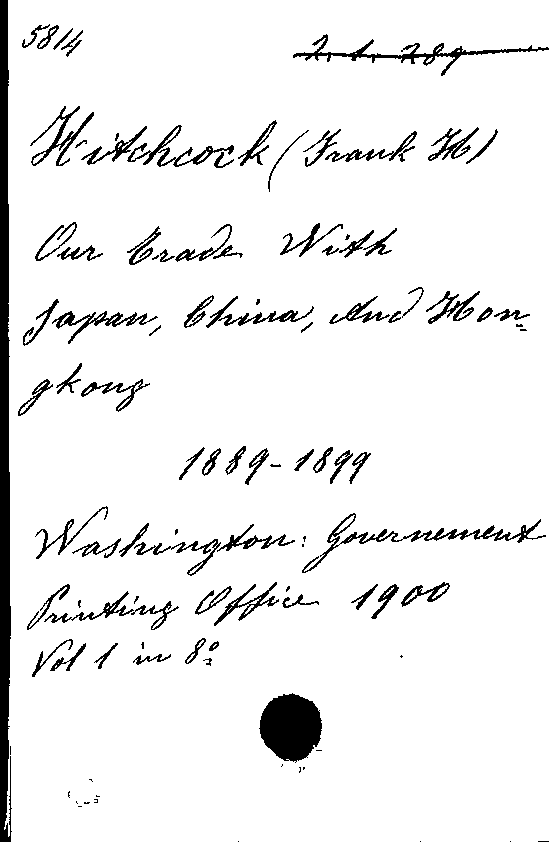 5814
2. 1. 289
Hitchcock (Frank H)
Our Trade With
Japan, China, And Hon=
gkong
1889-1899
Washington: Governement
Printing Office 1900
Vol 1 in 8º